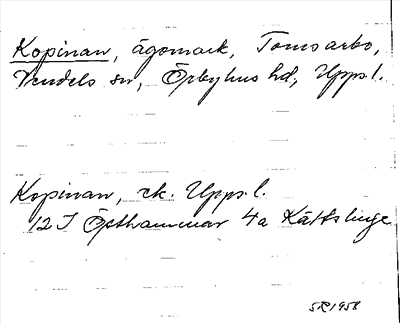 Kopinan, ägomark, Tomsarbo,
Vendels sn, Örbyhus hd, Upps.l.
Kopinan, ek. Upps.l.
12 I Östhammar 4a Kättslinge
SR 1958